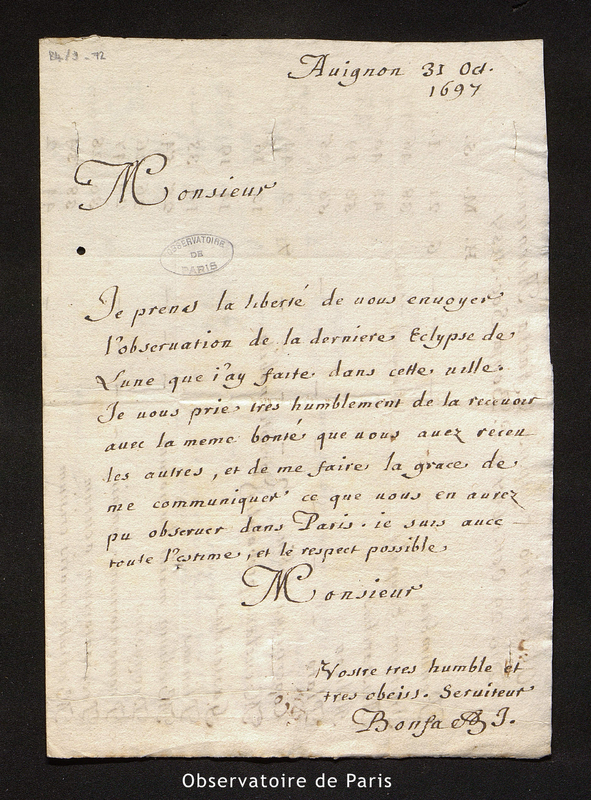 B4/9-12
Auignon 31 Oct.
1697
Monsieur
OBSERVATOIRE
DE
PARIS
Je prens la liberté de uous enuoyer
l'obseruation de la derniere Eclypse de
Lune que i'ay faite dans cette uille.
Je uous prie tres humblement de la receuoir
auec la meme bonté que uous auez receu
les autres, et de me faire la grace de
me communiquer ce que uous en aurez
pu obseruer dans Paris. ie suis auec
toute l'estime, et le respect possible
Monsieur
Vostre tres humble et
tres obeiss. Seruiteur
Bonfa J.
Observatoire de Paris